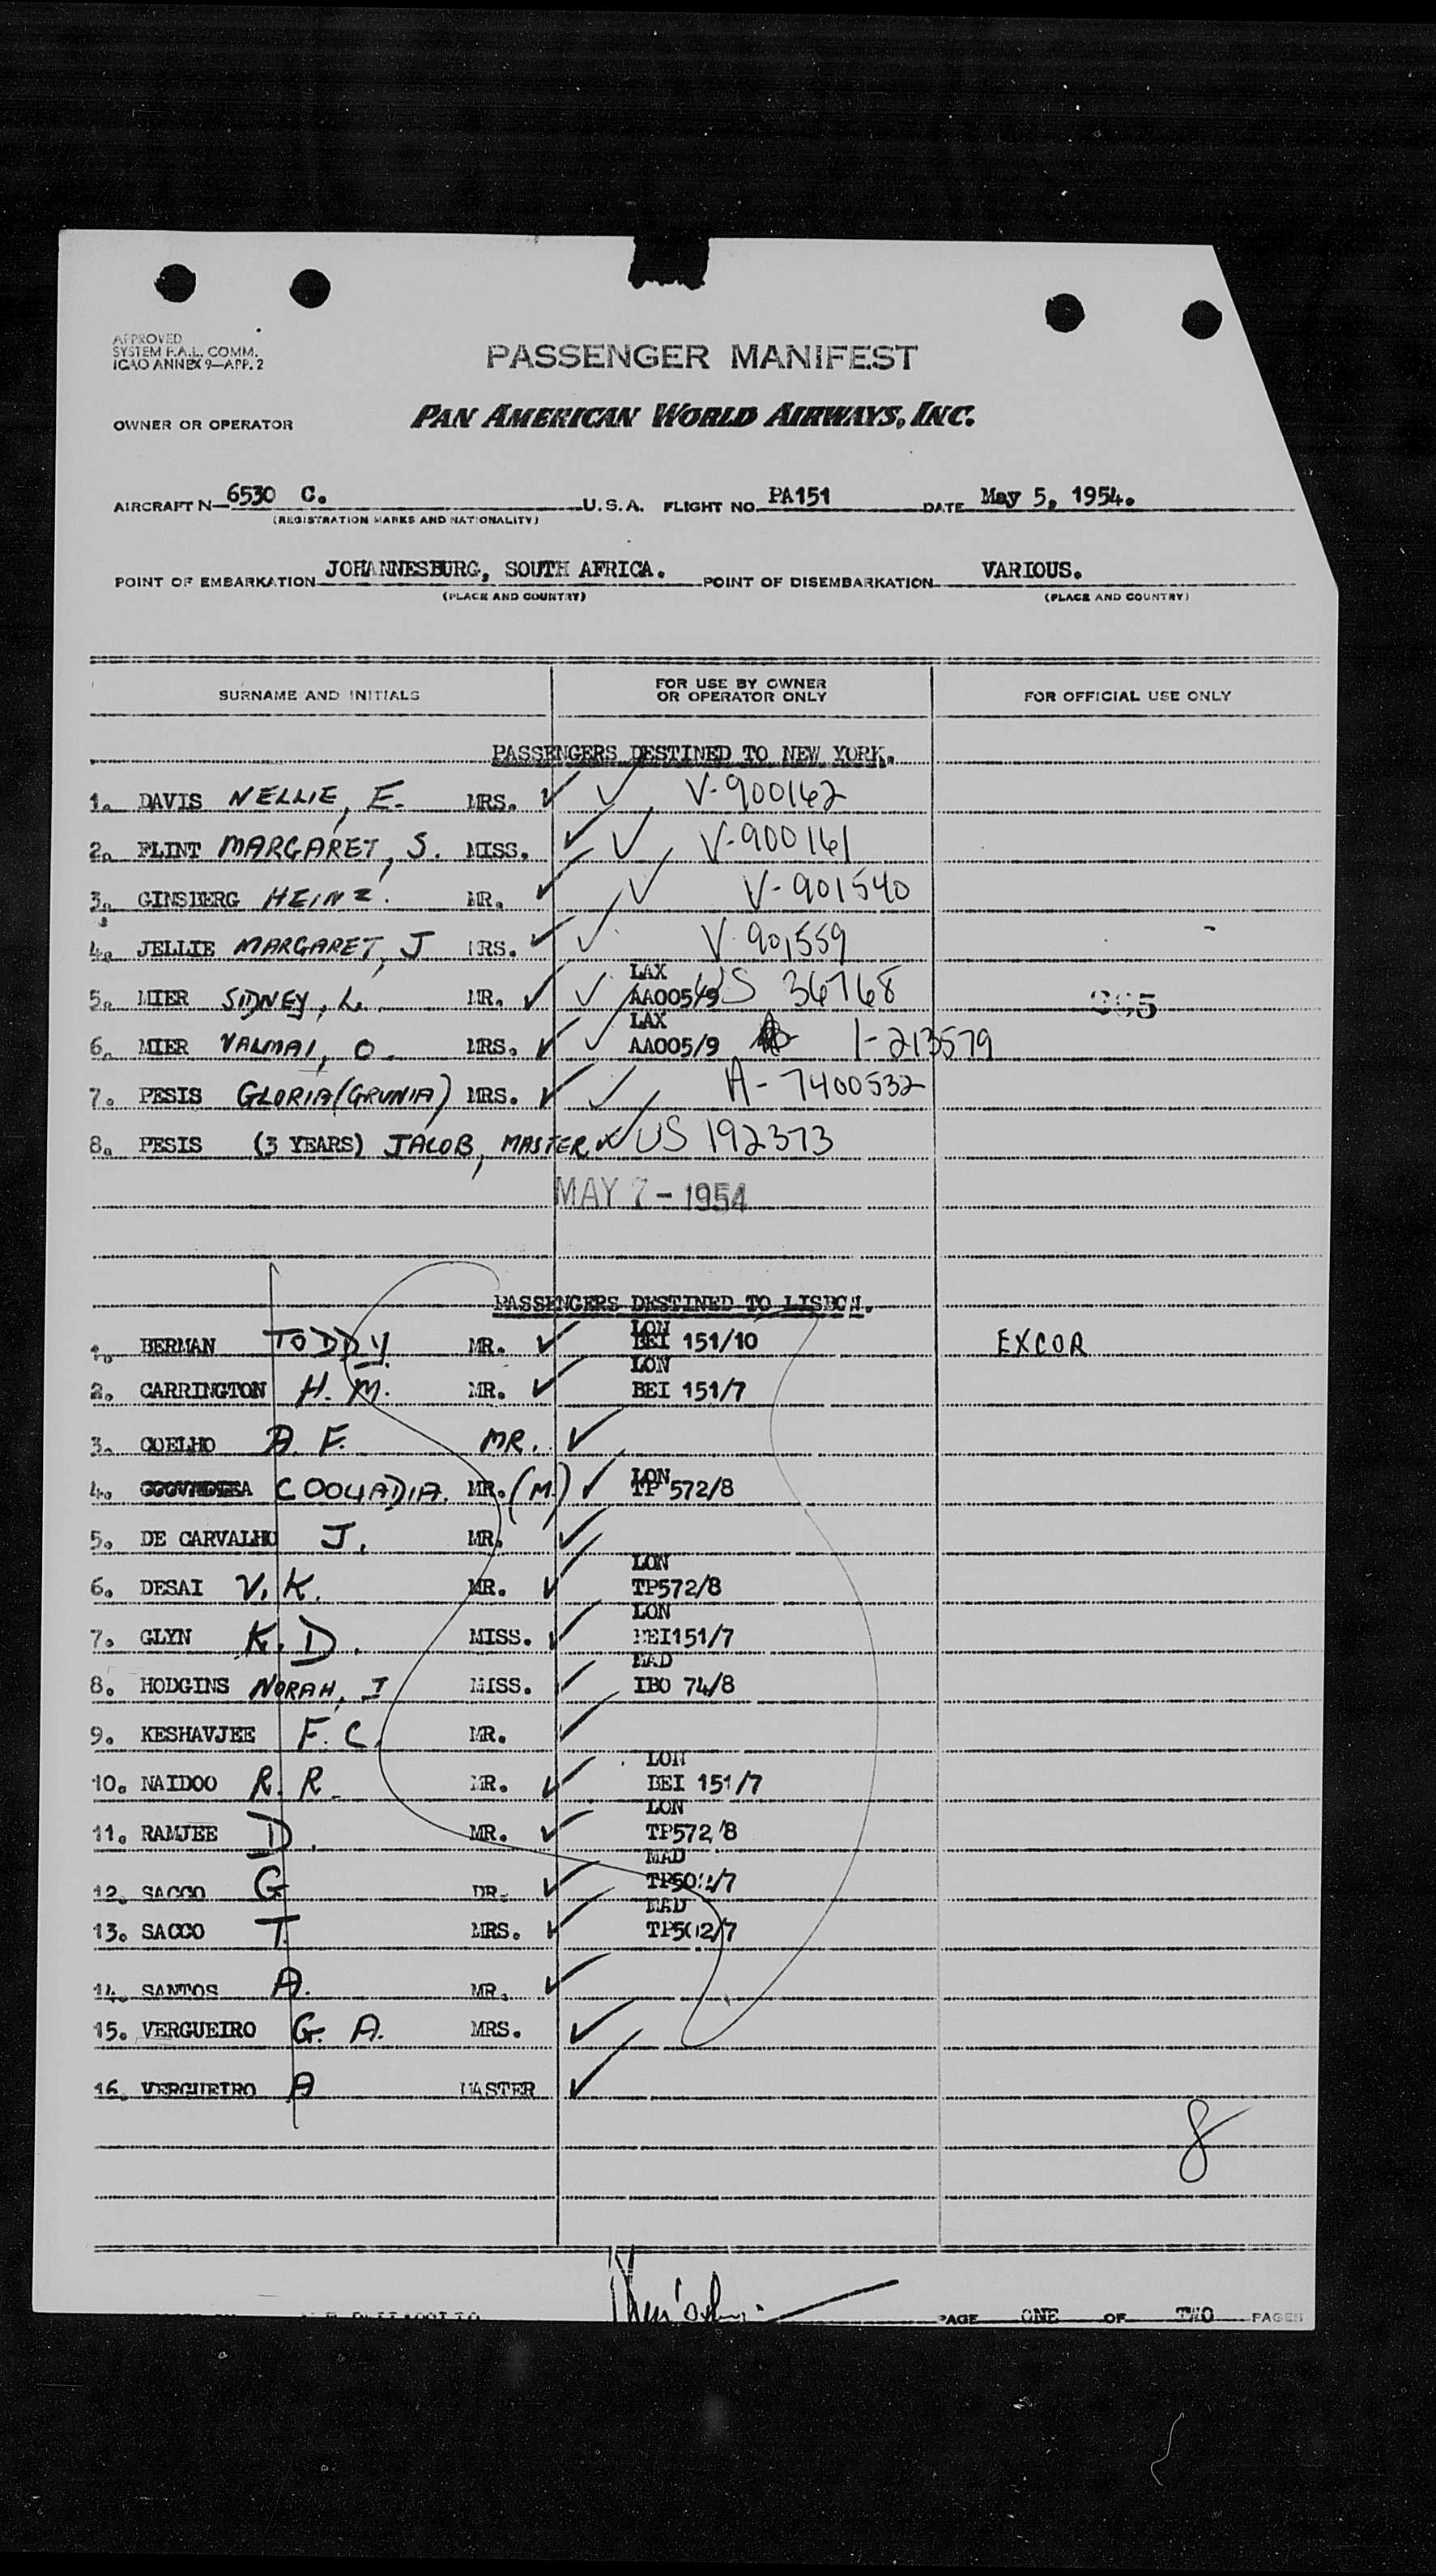 APPROVED
SYSTEM F.A.L. COMM.
ICAO ANNEX 9—APP. 2
PASSENGER MANIFEST
OWNER OR OPERATOR PAN AMERICAN WORLD AIRWAYS, INC.
AIRCRAFT N— 6530 C. U.S.A. FLIGHT NO. PA151 DATE May 5, 1954.
(REGISTRATION MARKS AND NATIONALITY)
POINT OF EMBARKATION JOHANNESBURG, SOUTH AFRICA. POINT OF DISEMBARKATION VARIOUS.
(PLACE AND COUNTRY) (PLACE AND COUNTRY)
SURNAME AND INITIALS FOR USE BY OWNER OR OPERATOR ONLY FOR OFFICIAL USE ONLY
PASSENGERS DESTINED TO NEW YORK.
1. DAVIS NELLIE, E. MRS. ✓ ✓ V-900162
2. FLINT MARGARET, S. MISS. ✓ ✓ V-900161
3. GINSBERG HEINZ. MR. ✓ ✓ V-901540
4. JELLIE MARGARET, J MRS. ✓ ✓ V-901559
LAX
5. MIER SIDNEY, L. MR. ✓ ✓ AA005/9 US 36768
LAX
6. MIER VALMAI, O. MRS. ✓ ✓ AA005/9 1-213579
7. PESIS GLORIA (GRUNIA) MRS. ✓ ✓ A-7400532
8. PESIS (3 YEARS) JACOB, MASTER ✓ US 192373
MAY 7-1954
PASSENGERS DESTINED TO LISBON.
LON
1. BERMAN TODDY MR. ✓ BEI 151/10 EXCOR
LON
2. CARRINGTON H. M. MR. ✓ BEI 151/7
3. COELHO A. F. MR. ✓
LON
4. COOUADIA. MR. (M.) ✓ TP 572/8
5. DE CARVALHO J. MR. ✓
LON
6. DESAI V. K. MR. ✓ TP572/8
LON
7. GLYN K. D. MISS. ✓ BEI151/7
MAD
8. HODGINS NORAH, I MISS. ✓ IBO 74/8
9. KESHAVJEE F. C. MR. ✓
LON
10. NAIDOO R. R. MR. ✓ BEI 151/7
LON
11. RAMJEE D. MR. ✓ TP572/8
MAD
12. SACCO G DR. ✓ TP502/7
MAD
13. SACCO T. MRS. ✓ TP502/7
14. SANTOS A. MR. ✓
15. VERGUEIRO G. A. MRS. ✓
16. VERGUEIRO A MASTER ✓
8
PAGE ONE OF TWO PAGES